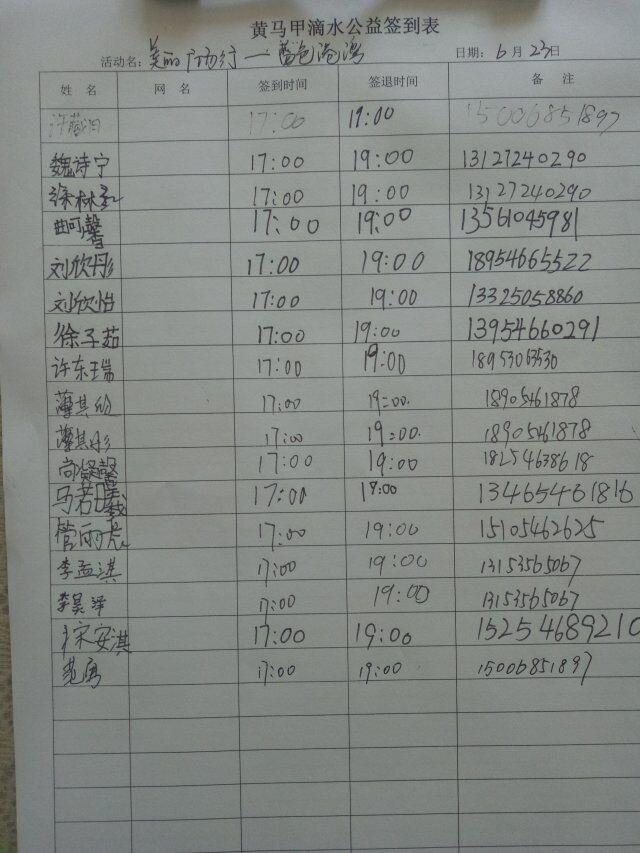 黄马甲滴水公益签到表
活动名: 美丽广场行—蓝色港湾 日期: 6月23日
姓 名 网 名 签到时间 签退时间 备 注
17:00 19:00 15006851897
魏诗宁 17:00 19:00 13127240290
徐林 17:00 19:00 13127240290
曲可馨 17:00 19:00 13561045981
刘欣彤 17:00 19:00 18954665522
刘欣怡 17:00 19:00 13325058860
徐子茹 17:00 19:00 13954660291
许东瑞 17:00 19:00 18953063530
薄其 17:00 19:00. 18905461878
薄其彤 17:00 19:00. 18905461878
尚贤馨 17:00 19:00 18254638618
马若曦 17:00 19:00 13465461816
管雨 17:00 19:00 15105462625
李孟淇 17:00 19:00 13153565067
李昊泽 17:00 19:00 13153565067
宋安淇 17:00 19:00 15254689210
范勇 17:00 19:00 15006851897